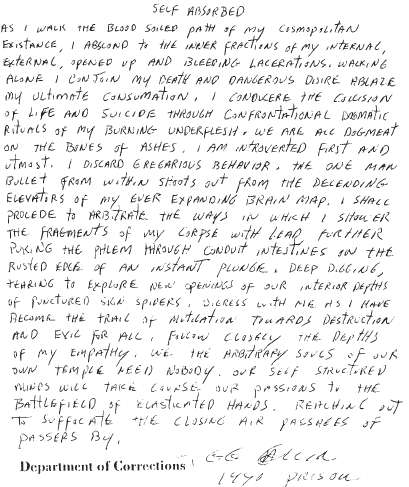 SELF ABSORBED
AS I WALK THE BLOOD SOILED PATH OF MY COSMOPOLITAN
EXISTANCE, I ABSCOND TO THE INNER FRACTIONS OF MY INTERNAL,
EXTERNAL, OPENED UP AND BLEEDING LACERATIONS. WALKING
ALONE I CONJOIN MY DEATH AND DANGEROUS DISIRE ABLAZE
MY ULTIMATE CONSUMATION. I CONDUCERE THE COLLISION
OF LIFE AND SUICIDE THROUGH CONFRONTATIONAL DOGMATIC
RITUALS OF MY BURNING UNDERFLESH. WE ARE ALL DOGMEAT
ON THE BONES OF ASHES. I AM INTROVERTED FIRST AND
UTMOST. I DISCARD GREGARIOUS BEHAVIOR. THE ONE MAN
BULLET FROM WITHIN SHOOTS OUT FROM THE DECENDING
ELEVATORS OF MY EVER EXPANDING BRAIN MAP. I SHALL
PROCEDE TO ARBITRATE THE WAYS IN WHICH I SHOWER
THE FRAGMENTS OF MY CORPSE WITH LEAD. FURTHER
PUKING THE PHLEM THROUGH CONDUIT INTESTINES ON THE
RUSTED EDGE OF AN INSTANT PLUNGE. DEEP DIGGING,
TEARING TO EXPLORE NEW OPENINGS OF OUR INTERIOR DEPTHS
OF PUNCTURED SKIN SPIDERS. DIGRESS WITH ME AS I HAVE
BECOME THE TRAIL OF MUTILATION TOWARDS DESTRUCTION
AND EVIL FOR ALL. FOLLOW CLOSELY THE DEPTHS
OF MY EMPATHY. WE THE ARBITRARY SOULS OF OUR
OWN TEMPLE NEED NOBODY. OUR SELF STRUCTURED
MINDS WILL TAKE COURSE OUR PASSIONS TO THE
BATTLEFIELD OF ELASTICATED HANDS. REACHING OUT
TO SUFFOCATE THE CLOSING AIR PASSAGES OF
PASSERS BY.
Department of Corrections GG Allin
1990 PRISON